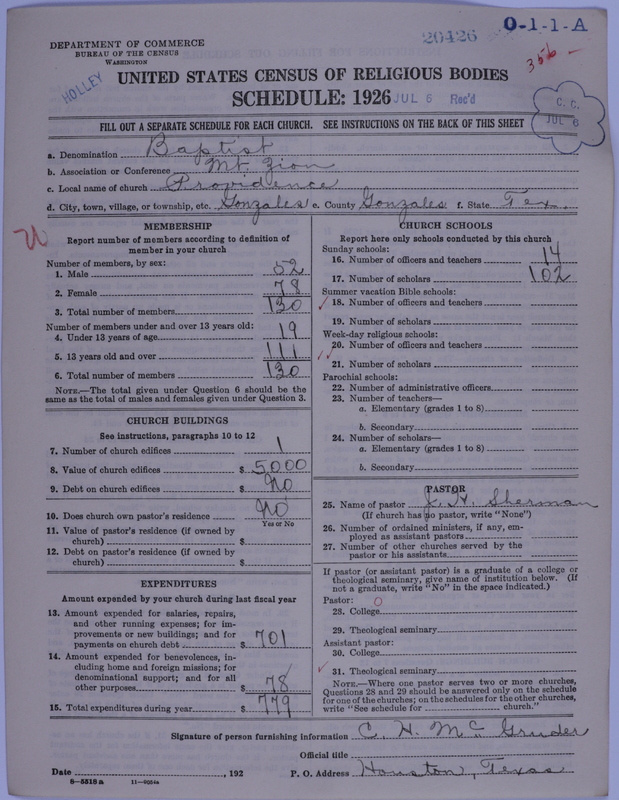 O-1-1-A
20426
356 —
DEPARTMENT OF COMMERCE
BUREAU OF THE CENSUS
WASHINGTON
HOLLEY
UNITED STATES CENSUS OF RELIGIOUS BODIES
SCHEDULE: 1926
JUL 6 Rec'd
C. C.
JUL 6
FILL OUT A SEPARATE SCHEDULE FOR EACH CHURCH. SEE INSTRUCTIONS ON THE BACK OF THIS SHEET
a. Denomination Baptist
b. Association or Conference Mt. Zion
c. Local name of church Providence
d. City, town, village, or township, etc. Gonzales e. County Gonzales f. State Tex.
MEMBERSHIP
Report number of members according to definition of
member in your church
Number of members, by sex:
1. Male 52
2. Female 78
3. Total number of members 130
Number of members under and over 13 years old:
4. Under 13 years of age 19
5. 13 years old and over 111
6. Total number of members 130
NOTE.—The total given under Question 6 should be the
same as the total of males and females given under Question 3.
CHURCH BUILDINGS
See instructions, paragraphs 10 to 12
7. Number of church edifices 1
8. Value of church edifices $ 5000
9. Debt on church edifices $ No
10. Does church own pastor's residence No
Yes or No
11. Value of pastor's residence (if owned by
church) $
12. Debt on pastor's residence (if owned by
church) $
EXPENDITURES
Amount expended by your church during last fiscal year
13. Amount expended for salaries, repairs,
and other running expenses; for im-
provements or new buildings; and for
payments on church debt $ 701
14. Amount expended for benevolences, in-
cluding home and foreign missions; for
denominational support; and for all
other purposes $ 78
15. Total expenditures during year $ 779
CHURCH SCHOOLS
Report here only schools conducted by this church
Sunday schools:
16. Number of officers and teachers 14
17. Number of scholars 102
Summer vacation Bible schools:
18. Number of officers and teachers
19. Number of scholars
Week-day religious schools:
20. Number of officers and teachers
21. Number of scholars
Parochial schools:
22. Number of administrative officers
23. Number of teachers—
a. Elementary (grades 1 to 8)
b. Secondary
24. Number of scholars—
a. Elementary (grades 1 to 8)
b. Secondary
PASTOR
25. Name of pastor J. H. Sherman
(If church has no pastor, write "None")
26. Number of ordained ministers, if any, em-
ployed as assistant pastors
27. Number of other churches served by the
pastor or his assistants
If pastor (or assistant pastor) is a graduate of a college or
theological seminary, give name of institution below. (If
not a graduate, write "No" in the space indicated.)
Pastor: 0
28. College
29. Theological seminary
Assistant pastor:
30. College
31. Theological seminary
NOTE.—Where one pastor serves two or more churches,
Questions 28 and 29 should be answered only on the schedule
for one of the churches; on the schedules for the other churches,
write "See schedule for church."
Signature of person furnishing information C. H. McGruder
Official title
Date , 192 P. O. Address Houston, Texas
8—5518a 11—9054a